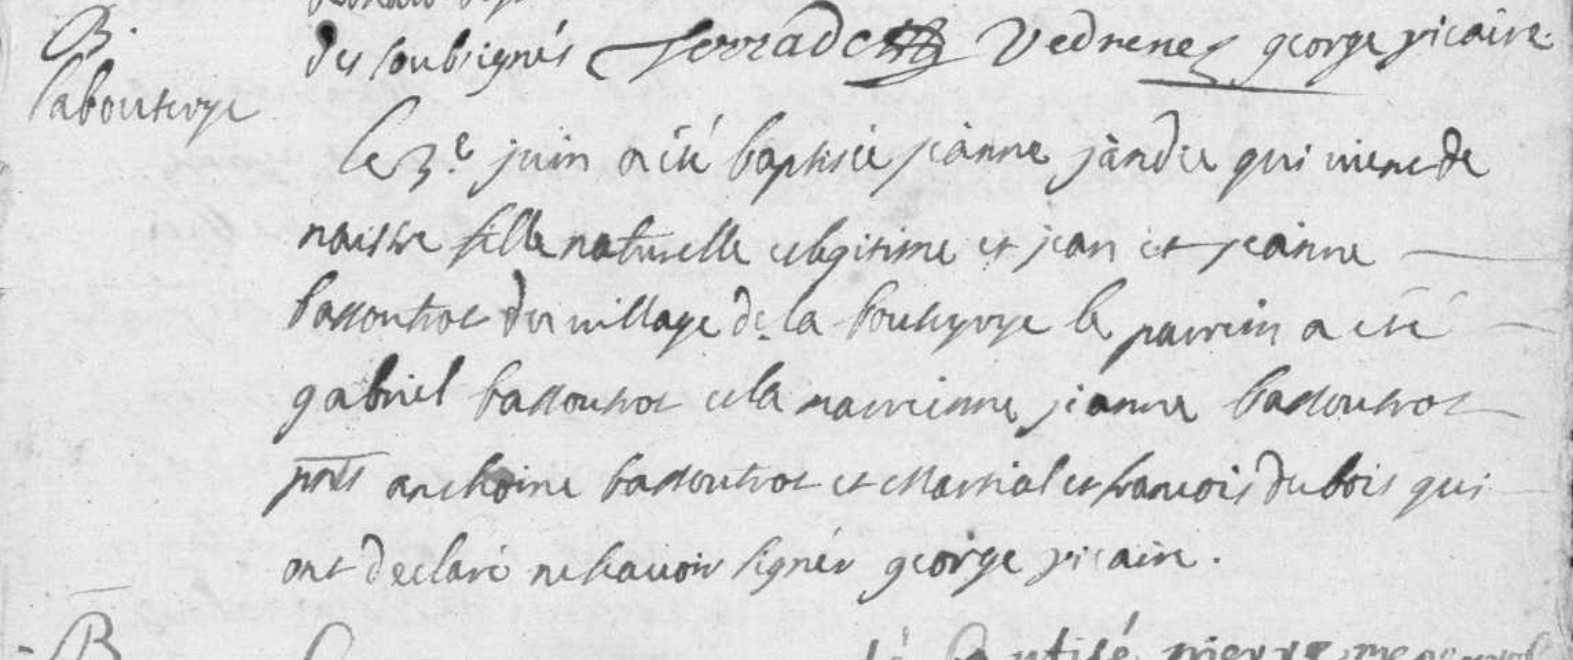 B.
des soubsignés Terrade Vedrenne george vicaire.
laboutarye
le 3.e juin a été baptisée jeanne qui vient de
naistre fille naturelle et legitime et jean et jeanne
bassoutrot du village de la le parrein a été
gabriel bassoutrot et la marreinne jeanne bassoutrot
pnts anthoine bassoutrot et Martial et francois dubois qui
ont declaré ne scavoir signér george vicaire.
B
baptisé pierre